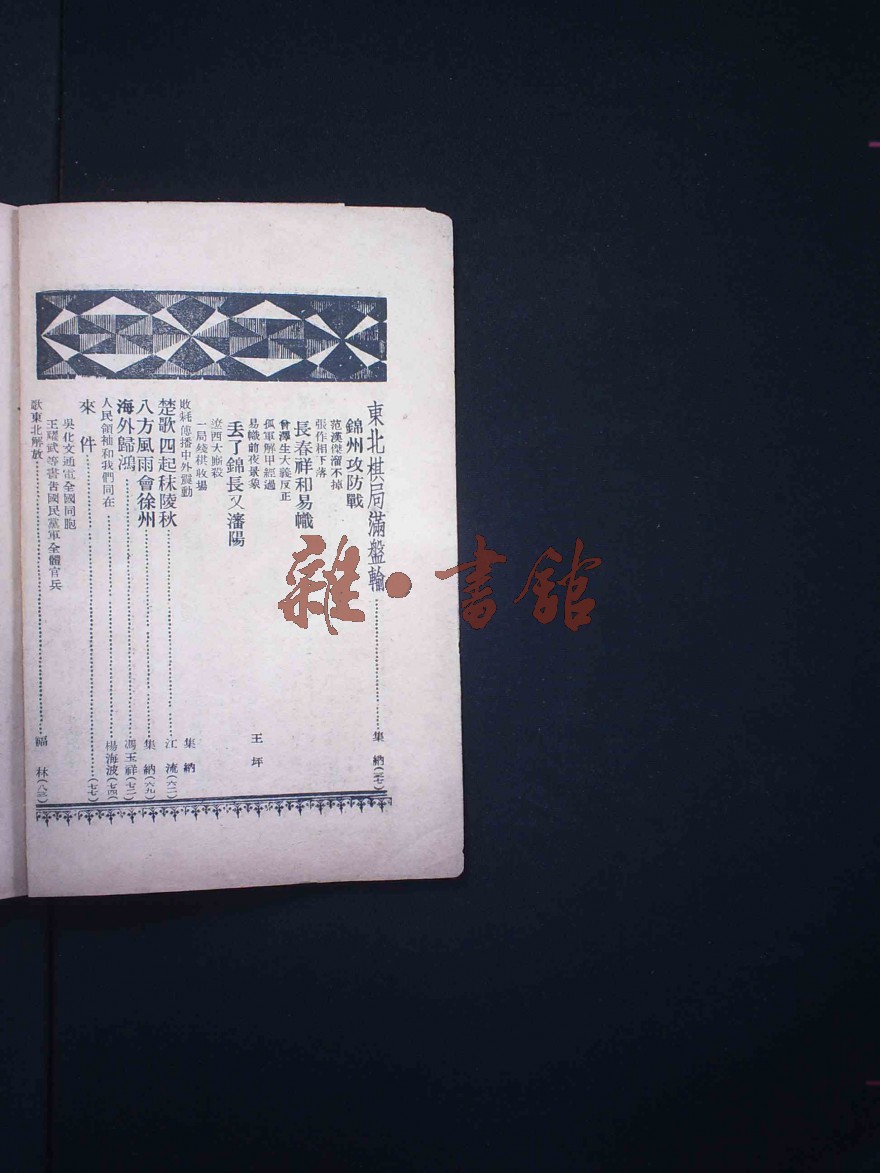 東北棋局滿盤輸 集納(三七)
錦州攻防戰
范漢傑溜不掉
張作相下落
長春祥和易幟
曾澤生大義反正
孤軍解甲經過
易幟前夜景象 王坪
丢了錦長又瀋陽
遼西大廝殺
一局殘棋收場
敗耗傳播中外震動 集納
楚歌四起秣陵秋 江流(六二)
八方風雨會徐州 集納(六九)
海外歸鴻 馮玉祥(七二)
人民領袖和我們同在 楊海波(七四)
來件 (七七)
吳化文通電全國同胞
王耀武等書告國民黨軍全體官兵
歌東北解放 福林(八三)
雜·書館